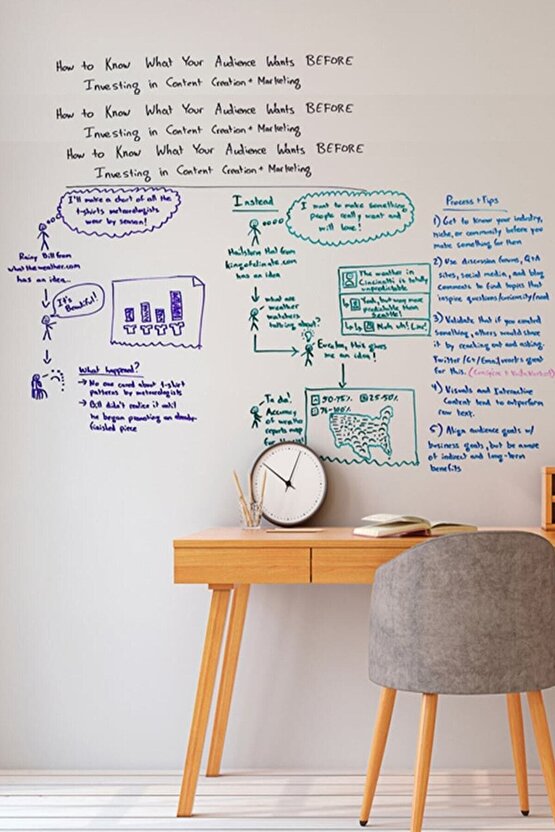 How to Know What Your Audience Wants BEFORE
Investing in Content Creation + Marketing
How to Know What Your Audience Wants BEFORE
Investing in Content Creation + Marketing
How to Know What Your Audience Wants BEFORE
Investing in Content Creation + Marketing
I'll make a chart of all the
t-shirts meteorologists
wear by season!
Rainy Bill from
whattheweather.com
has an idea...
It's
Beautiful!
What happened?
→ No one cared about t-shirt
patterns by meteorologists
→ Bill didn't realize it until
he began promoting an already-
finished piece
Instead
I want to make something
people really want and
will love!
Hailstorm Hal from
kingofclimate.com
has an idea
what are
weather
watchers
talking about?
The weather in
Cincinatti is totally
unpredictable
Yeah, but way more
predictable than
Seattle!
Nuh uh! Liar!
Eureka, this gives
me an idea!
To do:
Accuracy
of weather
reports map
50-75%
25-50%
76-100%
Process + Tips
1) Get to know your industry,
niche, or community before you
make something for them
2) Use discussion forums, Q+A
sites, social media, and blog
comments to find topics that
inspire questions/curiosity/need
3) Validate that if you created
something, others would share
it by reaching out and asking.
Twitter/G+/Email works great
for this.
4) Visuals and Interactive
Content tend to outperform
raw text.
5) Align audience goals w/
business goals, but be aware
of indirect and long-term
benefits